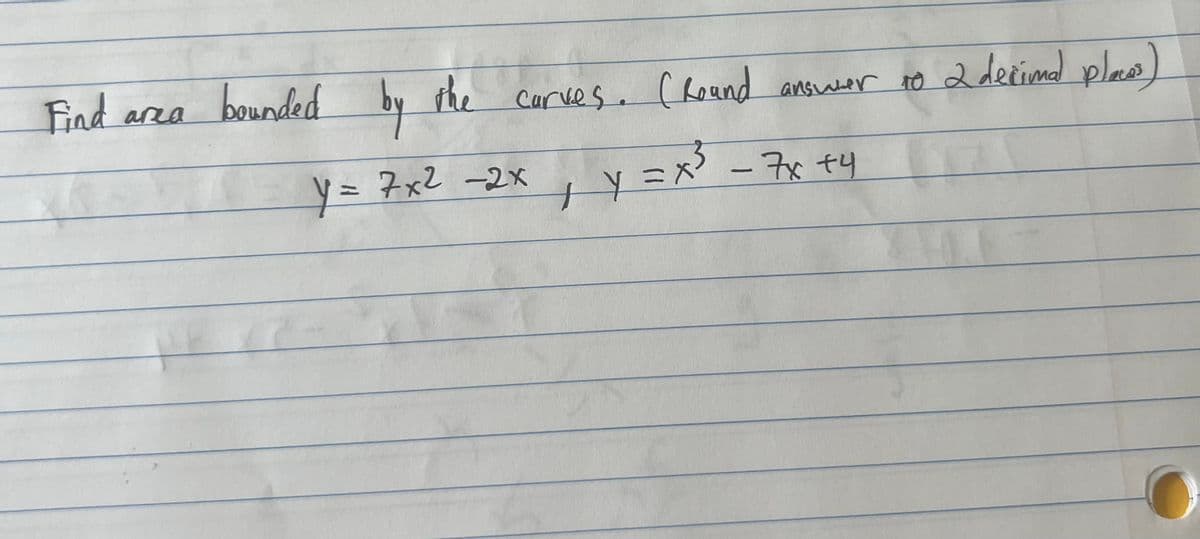 Find area bounded by the curves. (Round answer to 2 decimal places)
y = 7x² -2x , y = x³ - 7x +4